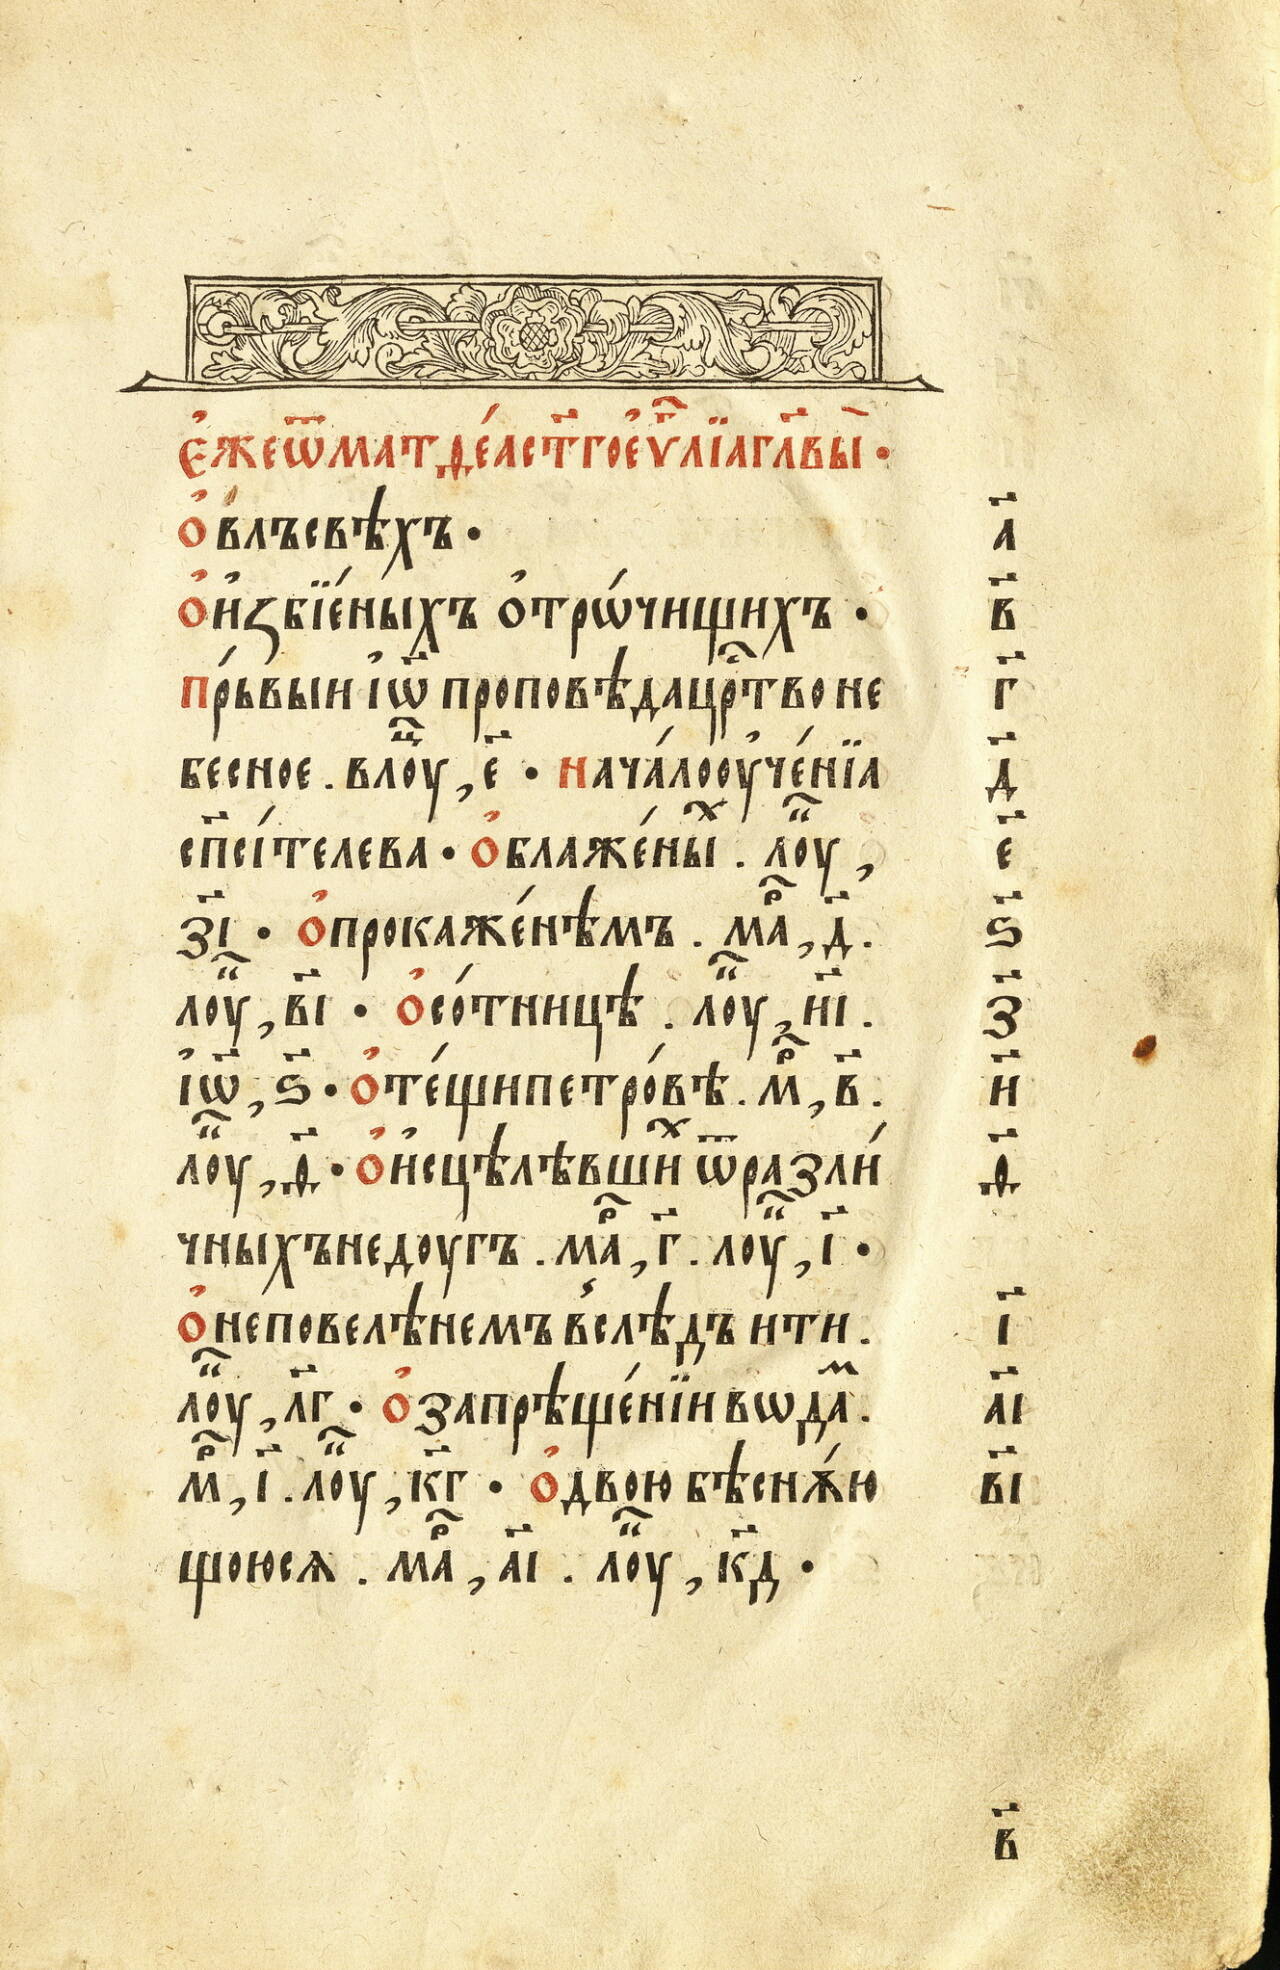 є҆жеѿматѳе́астг҃ое҆уⷢ҇лїагл҃вы҃ •
о҆влъсвѣхъ • а҃
о҆и҆ꙁбїе́ныхъ о҆трѡ́чищихъ • в҃
прь́выи і҆ѡ҃ проповѣдацрⷭ҇тво не г҃
бесное . влоуⷰ҇ , є҃ • нача́лооу҆че́нїа д҃
сп҃си́телева • о҆блаже́ныⷯ . лоуⷦ҇ , є҃
зі҃ • о҆прокаже́нѣмъ . маⷬ҇ , д҃ . ѕ҃
лоуⷦ҇ , в҃і • о҆со́тницѣ . лоуⷦ҇ , н҃і . з҃
і҆ѡ҃ , ѕ҃ • о҆те́щипетро́вѣ . мⷬ҇ , в҃ . и҃
лоуⷦ҇ , ѳ҃ • о҆и҆сцѣлѣвшиⷯ ѿразли́ ѳ҃
чныхънедоугъ . маⷬ҇ , г҃ . лоуⷦ҇ , і҃ •
о҆неповелѣнемъ в҆слѣдъ ити . і҃
лоуⷦ҇ , л҃г • о҆запрѣще́нїи вѡдаⷨ . а҃і
мⷬ҇ , і҃ . лоуⷦ҇ , к҃г • о҆двою бѣснѧ́ю в҃і
щоюсѧ . маⷬ҇ , а҃і . лоуⷦ҇ , к҃д •
в҃